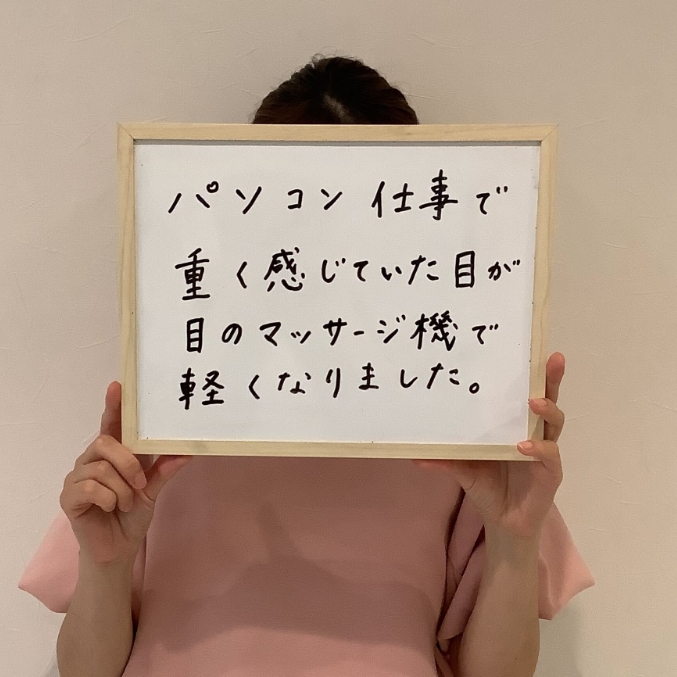 パソコン仕事で
重く感じていた目が
目のマッサージ機で
軽くなりました。